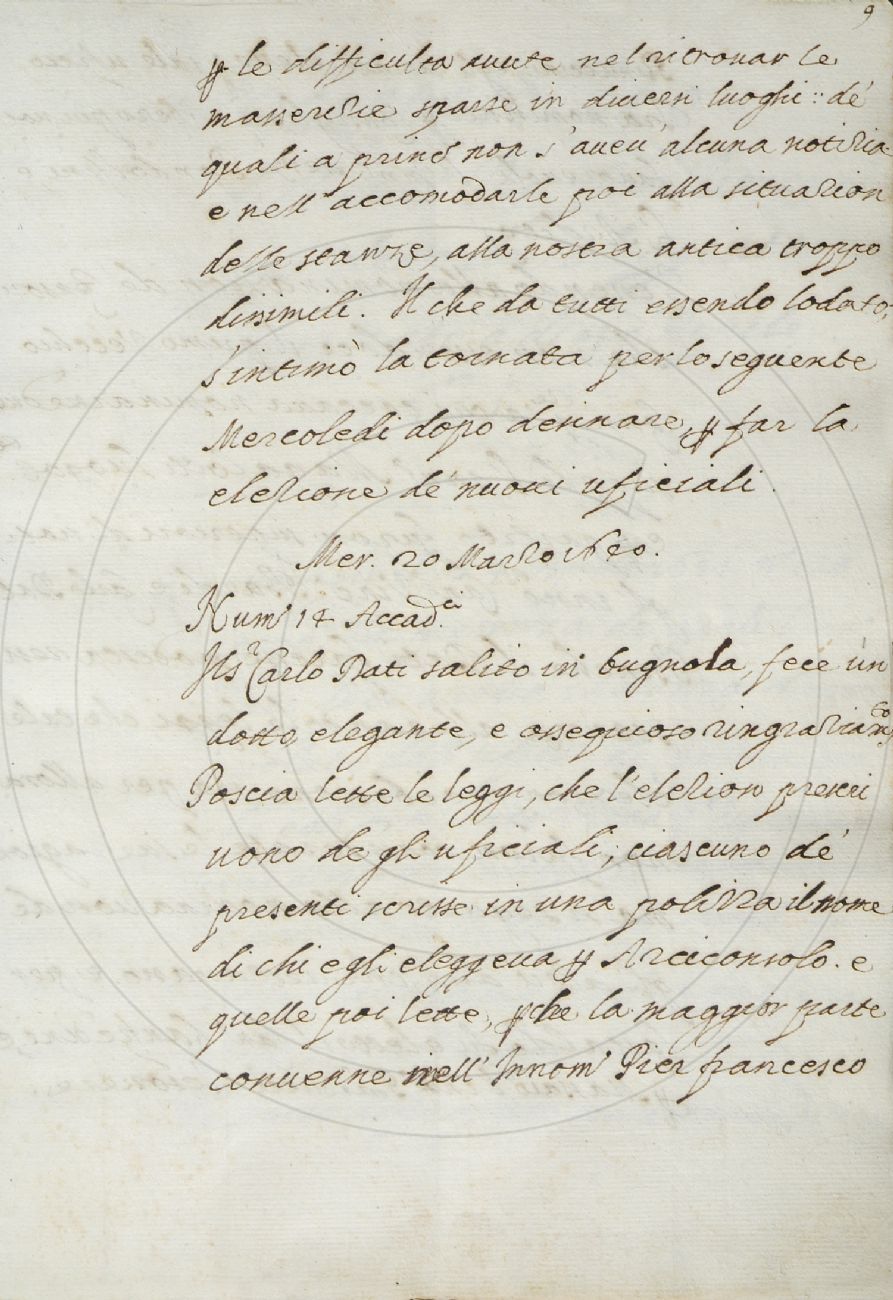 9
ꝑ le difficulta avute nel ritrovar le
masserizie sparse in diversi luoghi:: de'
quali a princ° non s'avev' alcuna notizia
e nell'accomodarle poi alla situazion
delle stanze, alla nostra antica troppo
dissimili. Il che da tutti essendo lodato,
s'intimò la tornata per lo seguente
Mercoledi dopo desinare, ꝑ far la
elezione de' nuovi uficiali.
Mer. 20 Marzo 1640.
Num° 14 Accad.ci
Il S.r Carlo Dati salito in bugnola, fece un
dotto, elegante, e ossequioso ringraziam.to
Poscia lette le leggi, che l'elezion prescri
vono degli uficiali; ciascuno de'
presenti scrisse in una polizza il nome
di chi egli eleggeva ꝑ Arciconsolo. e
quelle poi lette, ꝑche la maggior parte
convenne nell'Innom° Pier francesco